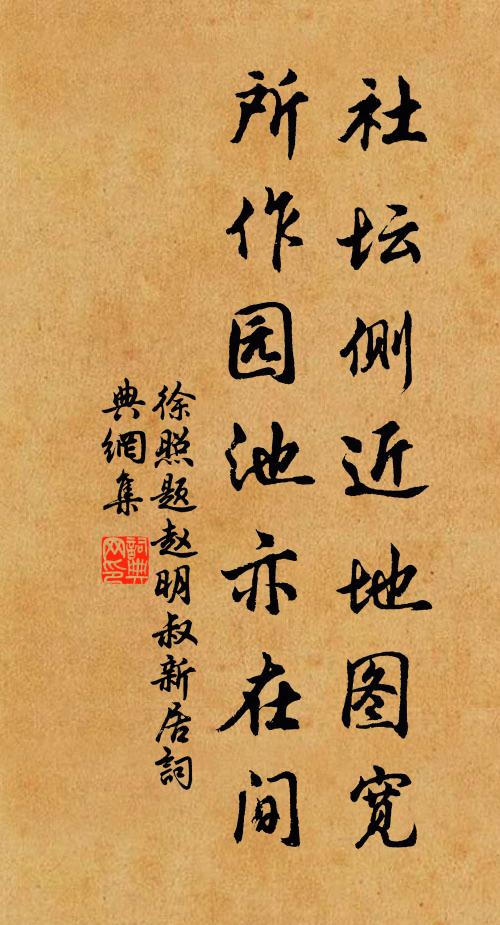 社坛侧近地图宽
所作园池亦在间
徐照题赵明叔新居詞
典網集
詞典网印